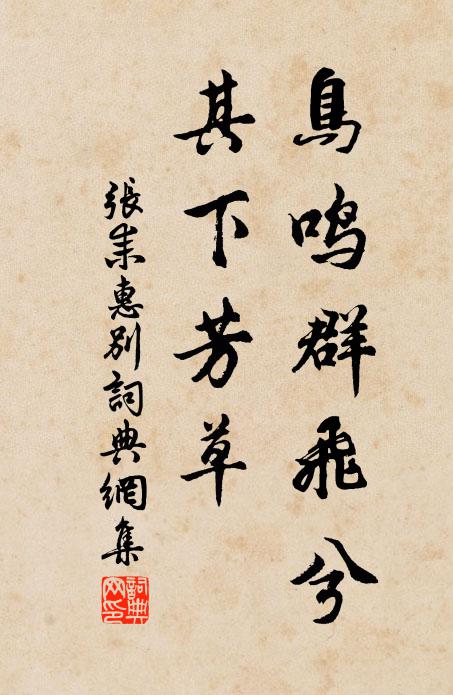 鳥鳴群飛兮
其下芳草
張耒惠别詞典網集
詞典
网印